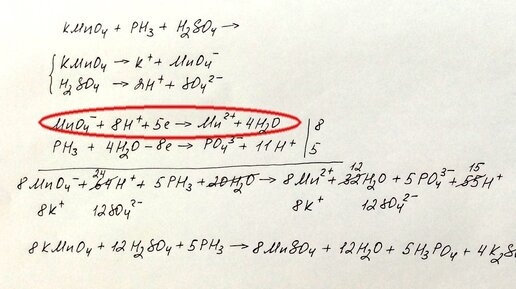 KMnO₄ + PH₃ + H₂SO₄ →
KMnO₄ → K⁺ + MnO₄⁻
H₂SO₄ → 2H⁺ + SO₄²⁻
MnO₄⁻ + 8H⁺ + 5e → Mn²⁺ + 4H₂O | 8
PH₃ + 4H₂O - 8e → PO₄³⁻ + 11H⁺ | 5
8MnO₄⁻ + 64 24 H⁺ + 5PH₃ + 20H₂O → 8Mn²⁺ + 32 12 H₂O + 5PO₄³⁻ + 55 15 H⁺
8K⁺ 12SO₄²⁻ 8K⁺ 12SO₄²⁻
8KMnO₄ + 12H₂SO₄ + 5PH₃ → 8MnSO₄ + 12H₂O + 5H₃PO₄ + 4K₂S